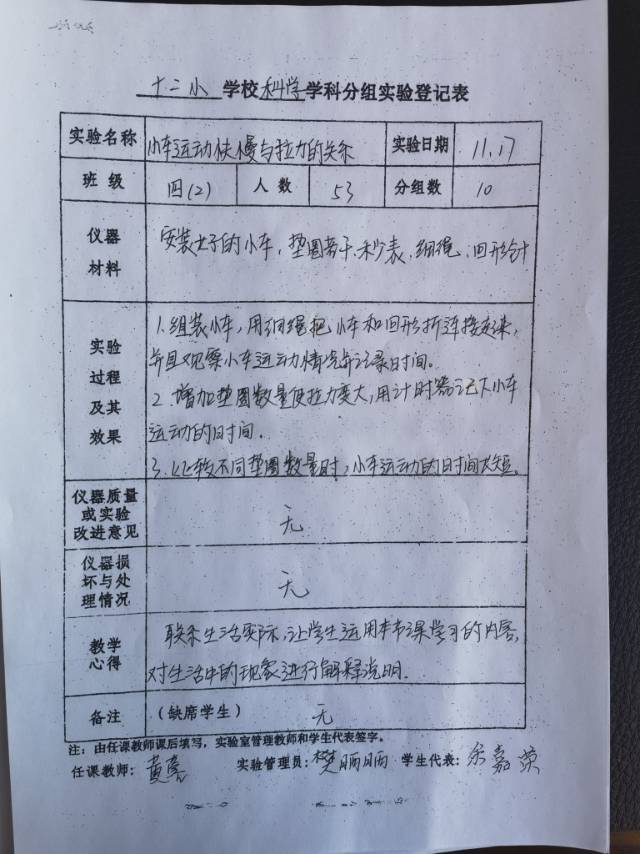 十二小 学校 科学 学科分组实验登记表
实验名称 小车运动快慢与拉力的关系 实验日期 11.17
班级 四(2) 人数 53 分组数 10
仪器材料 安装好的小车,垫圈若干、秒表、细绳、回形针
实验过程及其效果
1.组装小车,用细绳把小车和回形折连接起来,
并且观察小车运动情况并记录时间。
2.增加垫圈数量使拉力变大,用计时器记下小车
运动的时间.
3.比较不同垫圈数量时,小车运动的时间长短.
仪器质量或实验改进意见 无
仪器损坏与处理情况 无
教学心得
联系生活实际,让学生运用本节课学习的内容,
对生活中的现象进行解释说明.
备注 (缺席学生) 无
注:由任课教师课后填写,实验室管理教师和学生代表签字。
任课教师: 实验管理员:樊晒晒 学生代表:余嘉